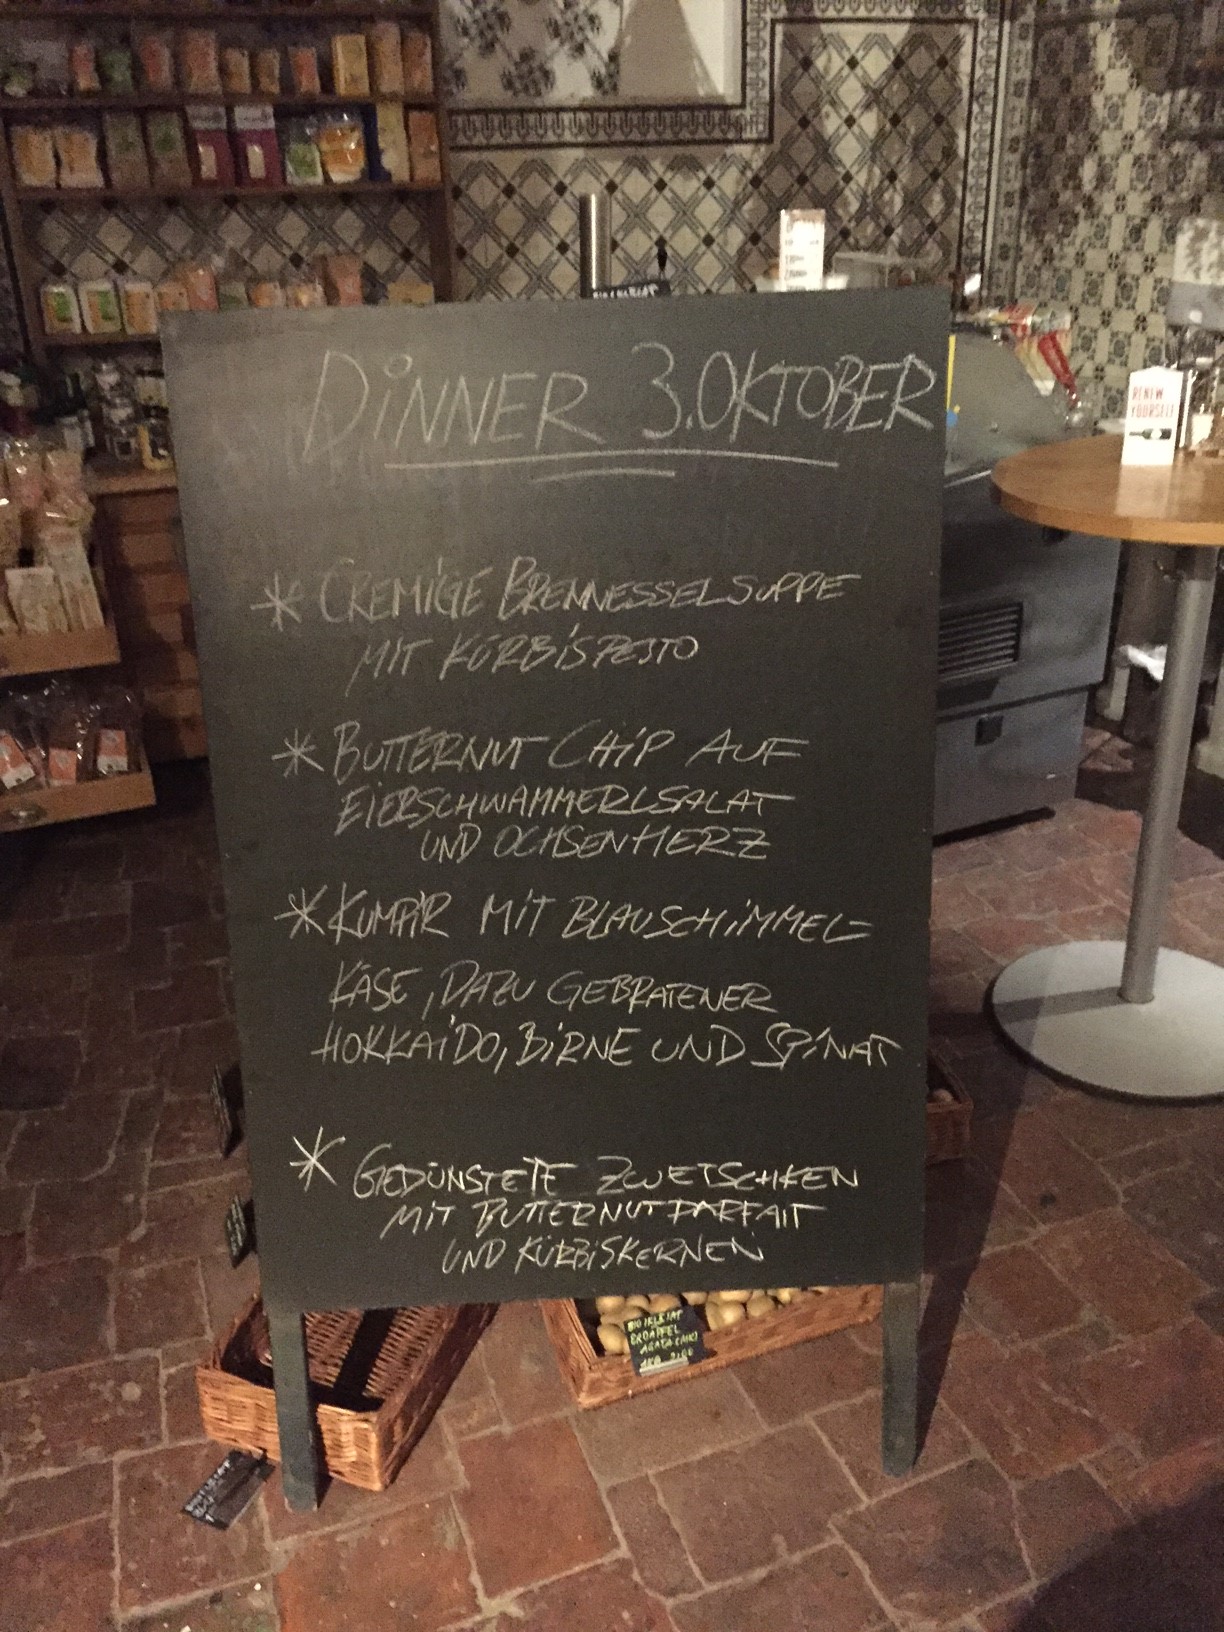 DINNER 3. OKTOBER
* CREMIGE BRENNESSELSUPPE
MIT KÜRBISPESTO
* BUTTERNUT CHIP AUF
EIERSCHWAMMERLSALAT
UND OCHSENHERZ
* KUMPIR MIT BLAUSCHIMMEL-
KÄSE, DAZU GEBRATENER
HOKKAIDO, BIRNE UND SPINAT
* GEDÜNSTETE ZWETSCHKEN
MIT BUTTERNUTPARFAIT
UND KÜRBISKERNEN
RENEW
YOURSELF
ERDÄPFEL